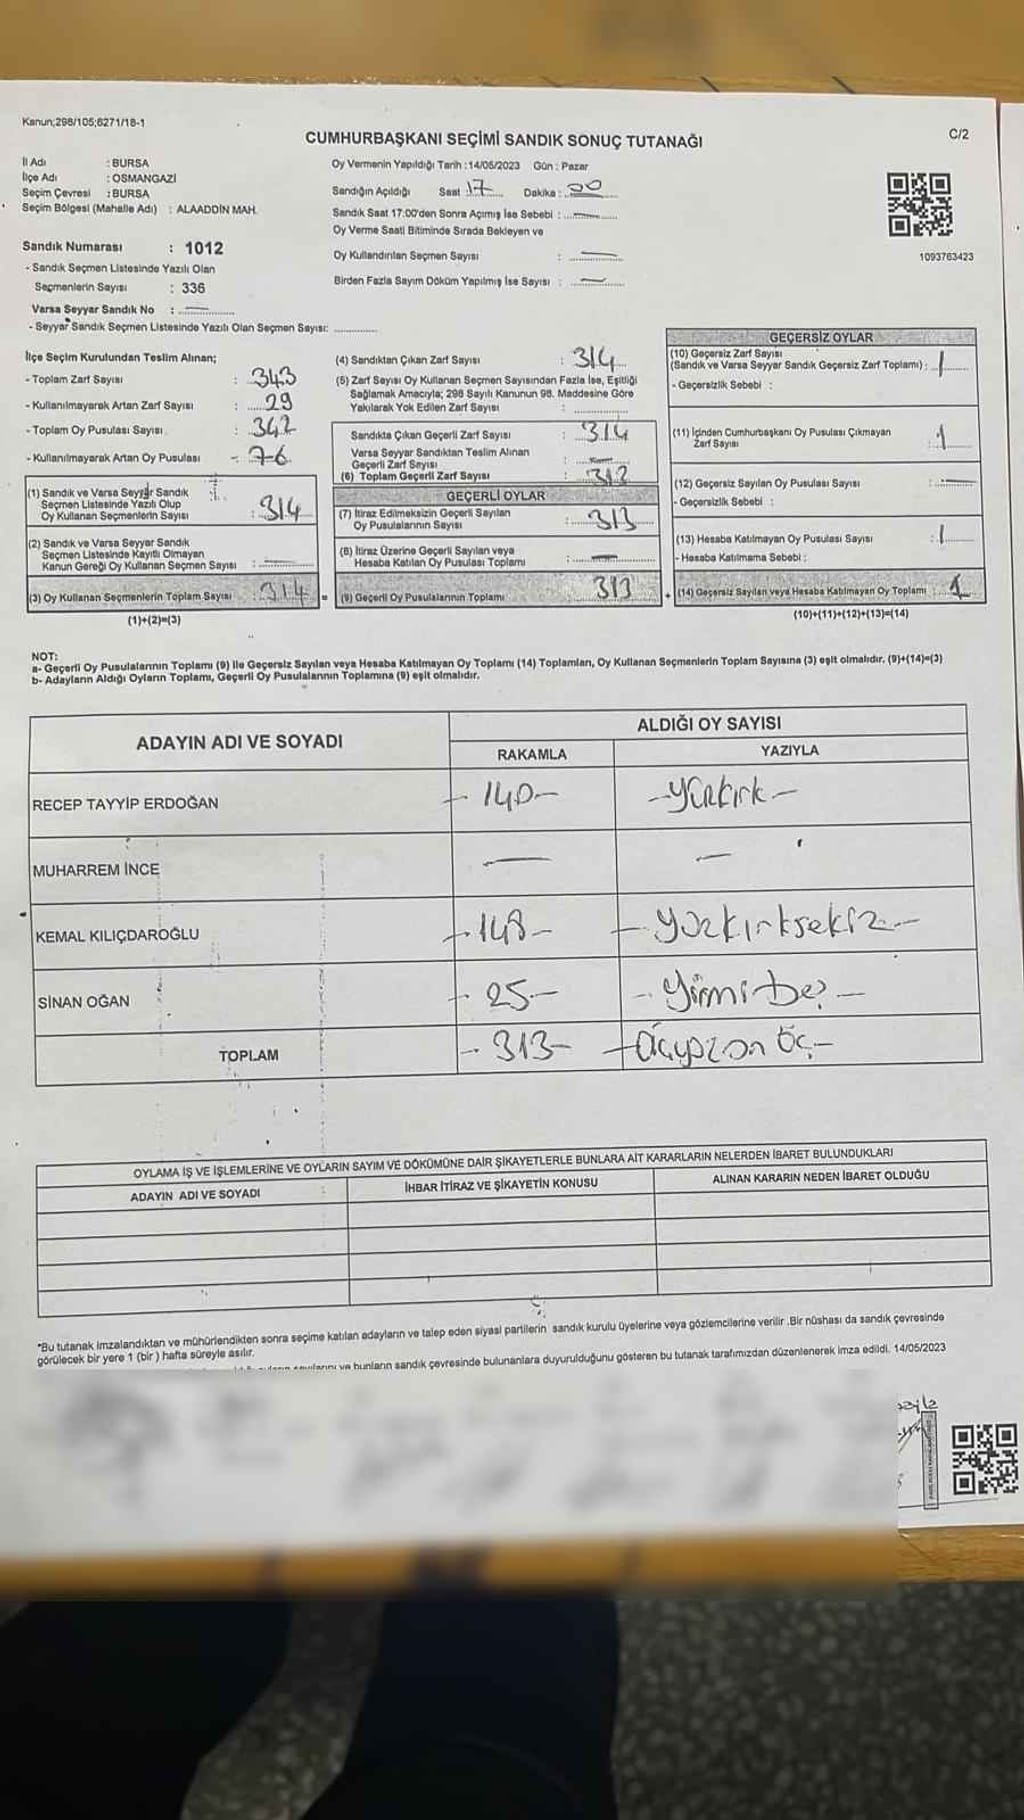 Kanun;298/105;6271/18-1
CUMHURBAŞKANI SEÇİMİ SANDIK SONUÇ TUTANAĞI
C/2
İl Adı : BURSA
İlçe Adı : OSMANGAZİ
Seçim Çevresi : BURSA
Seçim Bölgesi (Mahalle Adı) : ALAADDİN MAH.
Oy Vermenin Yapıldığı Tarih : 14/05/2023 Gün : Pazar
Sandığın Açıldığı Saat : 17 Dakika : 00
Sandık Saat 17:00'den Sonra Açımış İse Sebebi : —
Oy Verme Saati Bitiminde Sırada Bekleyen ve
Oy Kullandırılan Seçmen Sayısı : —
Birden Fazla Sayım Döküm Yapılmış İse Sayısı : —
1093763423
Sandık Numarası : 1012
- Sandık Seçmen Listesinde Yazılı Olan
Seçmenlerin Sayısı : 336
Varsa Seyyar Sandık No : —
- Seyyar Sandık Seçmen Listesinde Yazılı Olan Seçmen Sayısı: ............
İlçe Seçim Kurulundan Teslim Alınan;
- Toplam Zarf Sayısı : 343
- Kullanılmayarak Artan Zarf Sayısı : 29
- Toplam Oy Pusulası Sayısı : 342
- Kullanılmayarak Artan Oy Pusulası
(1) Sandık ve Varsa Seyyar Sandık
Seçmen Listesinde Yazılı Olup
Oy Kullanan Seçmenlerin Sayısı : 314
(2) Sandık ve Varsa Seyyar Sandık
Seçmen Listesinde Kayıtlı Olmayan
Kanun Gereği Oy Kullanan Seçmen Sayısı : —
(3) Oy Kullanan Seçmenlerin Toplam Sayısı : 314 =
(1)+(2)=(3)
(4) Sandıktan Çıkan Zarf Sayısı : 314
(5) Zarf Sayısı Oy Kullanan Seçmen Sayısından Fazla İse, Eşitliği
Sağlamak Amacıyla; 298 Sayılı Kanunun 98. Maddesine Göre
Yakılarak Yok Edilen Zarf Sayısı : ............
Sandıkta Çıkan Geçerli Zarf Sayısı : 314
Varsa Seyyar Sandıktan Teslim Alınan
Geçerli Zarf Sayısı : —
(6) Toplam Geçerli Zarf Sayısı : 313
GEÇERLİ OYLAR
(7) İtiraz Edilmeksizin Geçerli Sayılan
Oy Pusulalarının Sayısı : 313
(8) İtiraz Üzerine Geçerli Sayılan veya
Hesaba Katılan Oy Pusulası Toplamı : —
(9) Geçerli Oy Pusulalarının Toplamı 313 +
GEÇERSİZ OYLAR
(10) Geçersiz Zarf Sayısı
(Sandık ve Varsa Seyyar Sandık Geçersiz Zarf Toplamı) : 1
- Geçersizlik Sebebi :
(11) İçinden Cumhurbaşkanı Oy Pusulası Çıkmayan
Zarf Sayısı : 1
(12) Geçersiz Sayılan Oy Pusulası Sayısı : —
- Geçersizlik Sebebi :
(13) Hesaba Katılmayan Oy Pusulası Sayısı : 1
- Hesaba Katılmama Sebebi :
(14) Geçersiz Sayılan veya Hesaba Katılmayan Oy Toplamı : 1
(10)+(11)+(12)+(13)=(14)
NOT:
a- Geçerli Oy Pusulalarının Toplamı (9) ile Geçersiz Sayılan veya Hesaba Katılmayan Oy Toplamı (14) Toplamları, Oy Kullanan Seçmenlerin Toplam Sayısına (3) eşit olmalıdır. (9)+(14)=(3)
b- Adayların Aldığı Oyların Toplamı, Geçerli Oy Pusulalarının Toplamına (9) eşit olmalıdır.
ADAYIN ADI VE SOYADI
ALDIĞI OY SAYISI
RAKAMLA
YAZIYLA
RECEP TAYYİP ERDOĞAN - 140 - - yüzkırk -
MUHARREM İNCE — —
KEMAL KILIÇDAROĞLU - 148 - - yüzkırksekiz -
SİNAN OĞAN - 25 - - yirmibeş -
TOPLAM - 313 - - üçyüzon üç -
OYLAMA İŞ VE İŞLEMLERİNE VE OYLARIN SAYIM VE DÖKÜMÜNE DAİR ŞİKAYETLERLE BUNLARA AİT KARARLARIN NELERDEN İBARET BULUNDUKLARI
ADAYIN ADI VE SOYADI
İHBAR İTİRAZ VE ŞİKAYETİN KONUSU
ALINAN KARARIN NEDEN İBARET OLDUĞU
*Bu tutanak imzalandıktan ve mühürlendikten sonra seçime katılan adayların ve talep eden siyasi partilerin sandık kurulu üyelerine veya gözlemcilerine verilir .Bir nüshası da sandık çevresinde
görülecek bir yere 1 (bir ) hafta süreyle asılır.
ve bunların sandık çevresinde bulunanlara duyurulduğunu gösteren bu tutanak tarafımızdan düzenlenerek imza edildi. 14/05/2023